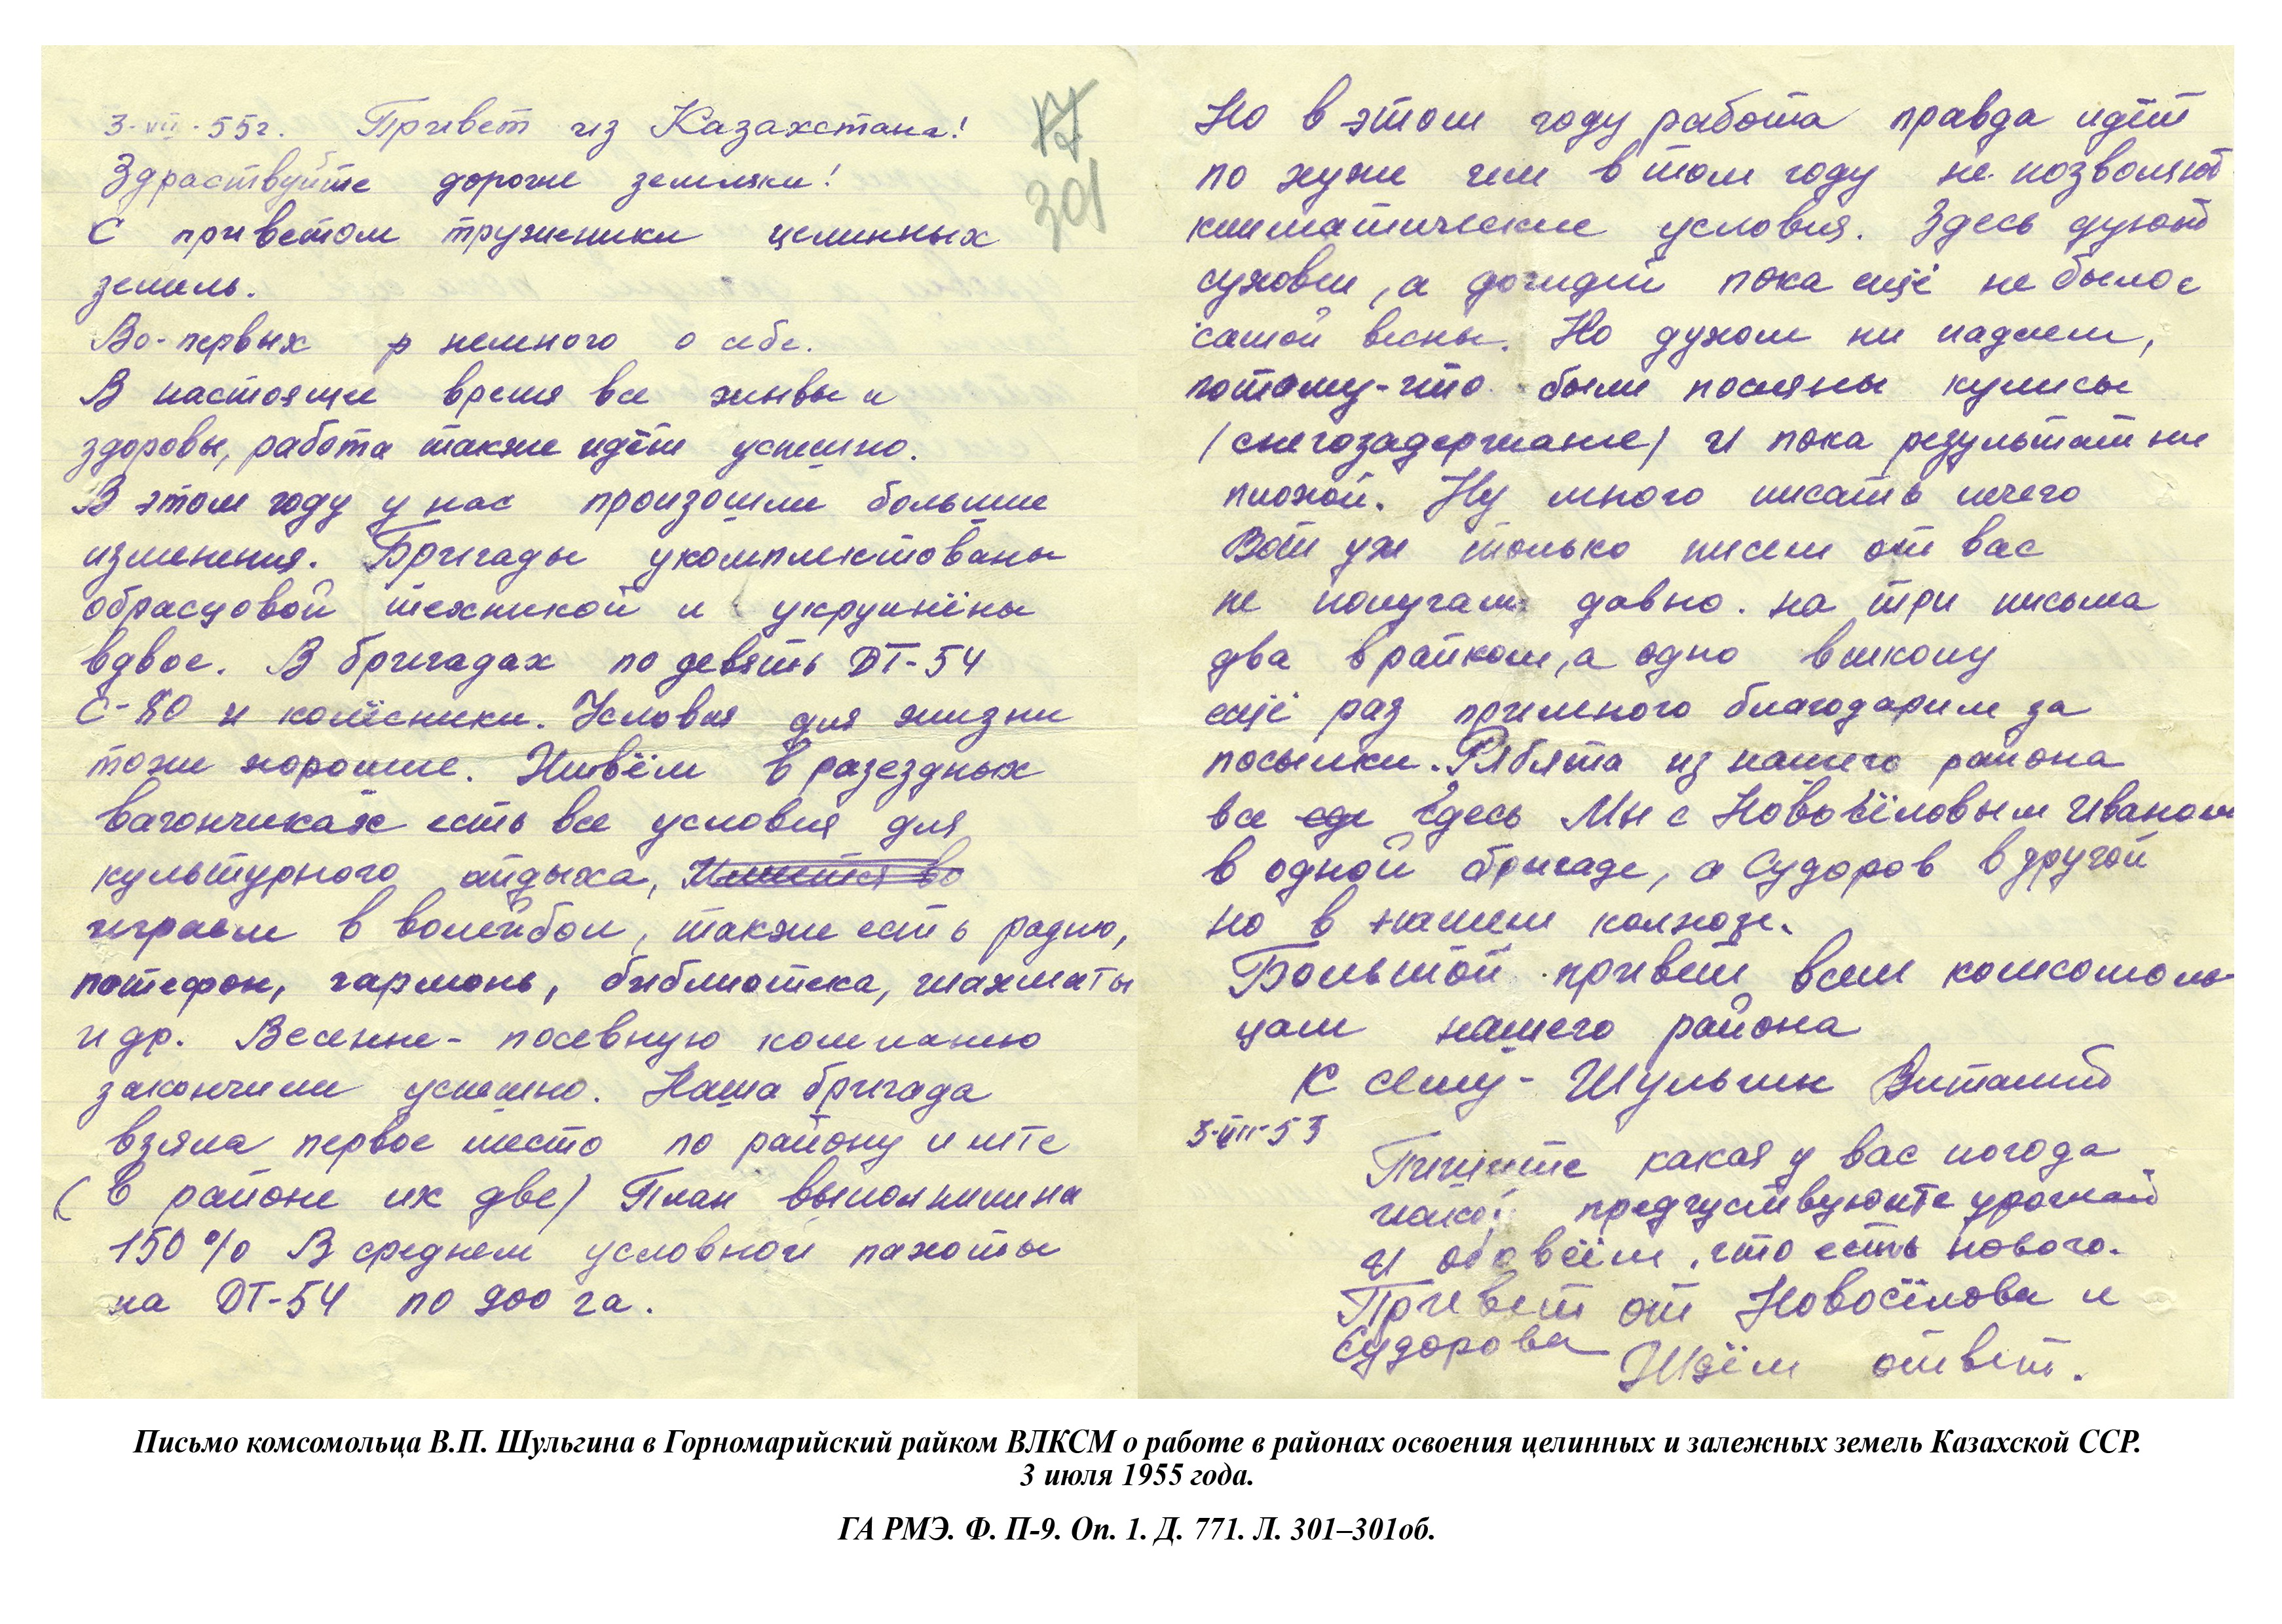 3-VII-55г. Привет из Казахстана!
17
301
Здраствуйте дорогие земляки!
С приветом труженики целинных
земель.
Во-первых немного о себе.
В настоящие время все живы и
здоровы, работа также идёт успешно.
В этом году у нас произошли большие
изменения. Бригады укомплектованы
образцовой техникой и укрупнёны
вдвое. В бригадах по девять ДТ-54
С-80 и колёсники. Условия для жизни
тоже хорошие. Живём в разездных
вагончиках есть все условия для
культурного отдыха,
играем в волейбол, также есть радио,
потефон, гармонь, библиотека, шахматы
и др. Весенне-посевную компанию
закончили успешно. Наша бригада
взяла первое место по району и мтс
(в районе их две) План выполнили на
150% В среднем условной пахоты
на ДТ-54 по 900 га.
Но в этом году работа правда идёт
по хуже чем в том году не позволяют
климатические условия. Здесь дуют
суховеи, а дождей пока ещё не было с
самой весны. Но духом ни падаем,
потому-что были посеяны кулисы
(снегозадержание) и пока результат не
плохой. Ну много писать нечего
Вот уж только писем от вас
не получаем давно. на три письма
два в райком, а одно в школу
ещё раз премного благодарим за
посылки. Рябята из нашего района
все здесь Мы с Новосёловым Иваном
в одной бригаде, а Судоров в другой
но в нашем колхозе.
Большой привет всем комсомоль-
цам нашего района
К сему - Шульгин Виталий
3-VII-53
Пишите какая у вас погода
какой предчуствуюите урожай
и обо всём, что есть нового.
Привет от Новосёлова и
Судорова Ждём ответ.
Письмо комсомольца В.П. Шульгина в Горномарийский райком ВЛКСМ о работе в районах освоения целинных и залежных земель Казахской ССР.
3 июля 1955 года.
ГА РМЭ. Ф. П-9. Оп. 1. Д. 771. Л. 301–301об.